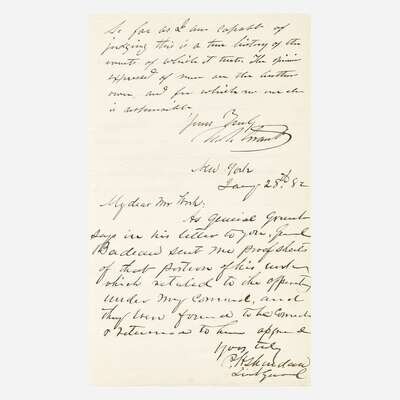 So far as I am capable of
judging this is a true history of the
events of which it treats. The opinions
expressed of men are the authors
own, and for which no one else
is responsible
Yours Truly
U. S. Grant
New York
Jany 28th 82
My dear Mr
As General Grant
says in his letter to you, Genl
Badeau sent me proof sheets
of that portion of his work
which related to the
under my Command, and
they were found to be correct
& returned to him approved
Yours truly
P H Sheridan
Lieut General